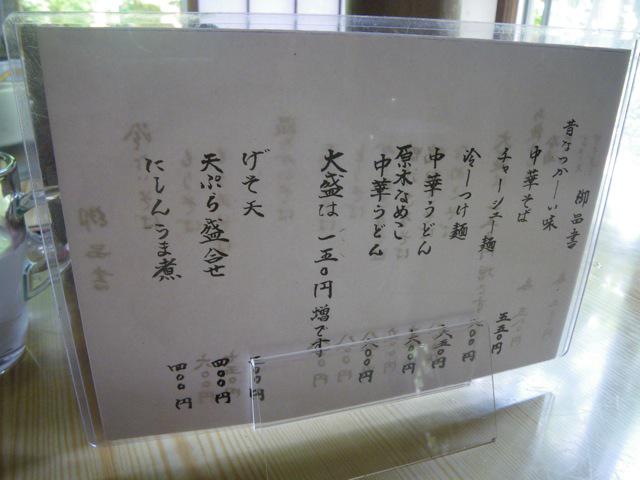 御品書
昔なつかしい味
中華そば 五五〇円
チャーシュー麺 八〇〇円
冷しつけ麺 六五〇円
中華うどん 六〇〇円
原木なめこ
中華うどん 八〇〇円
大盛は一五〇円増です
げそ天
天ぷら盛合せ 四〇〇円
にしんうま煮 四〇〇円